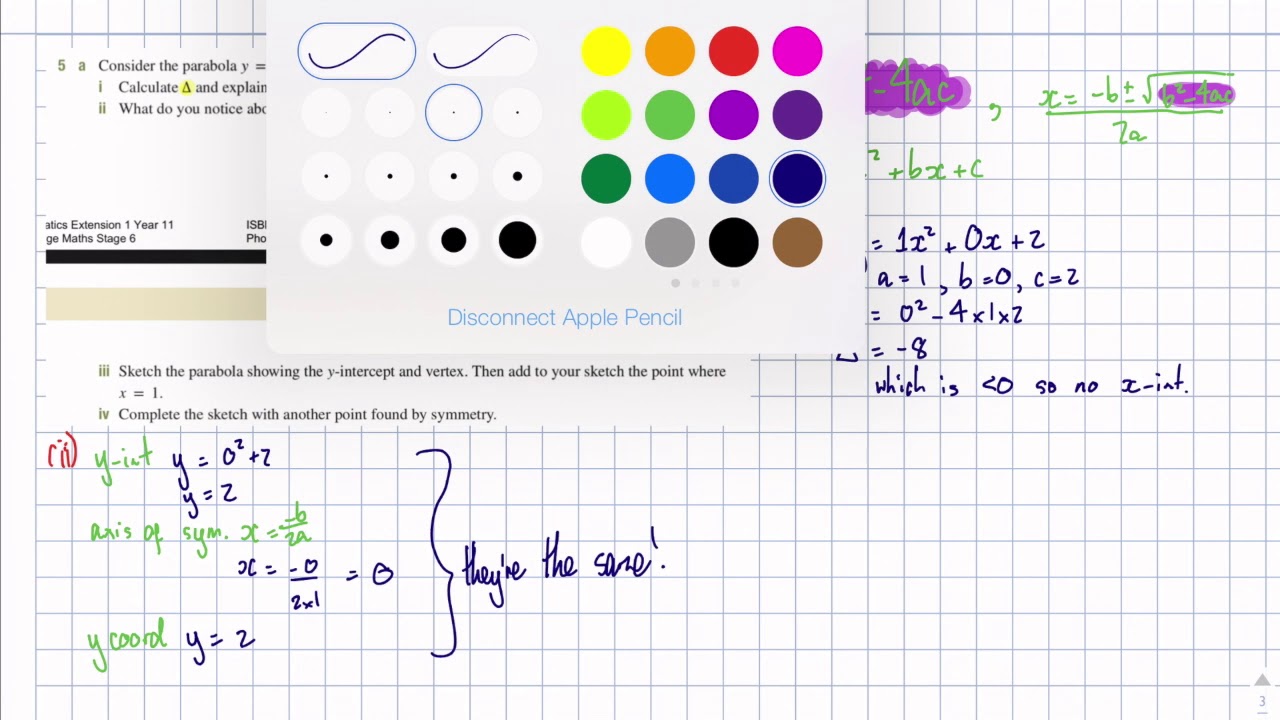 5 a Consider the parabola y =
i Calculate Δ and explain
ii What do you notice abo
atics Extension 1 Year 11 ISB
ge Maths Stage 6 Pho
Disconnect Apple Pencil
iii Sketch the parabola showing the y-intercept and vertex. Then add to your sketch the point where
x = 1.
iv Complete the sketch with another point found by symmetry.
-4ac , x = -b ± √b²-4ac / 2a
² + bx + c
= 1x² + 0x + 2
a=1, b=0, c=2
= 0² - 4×1×2
= -8
which is <0 so no x-int.
(ii) y-int y = 0²+2
y = 2
axis of sym. x = -b/2a
x = -0/2×1 = 0
y coord y = 2
they're the same!
3